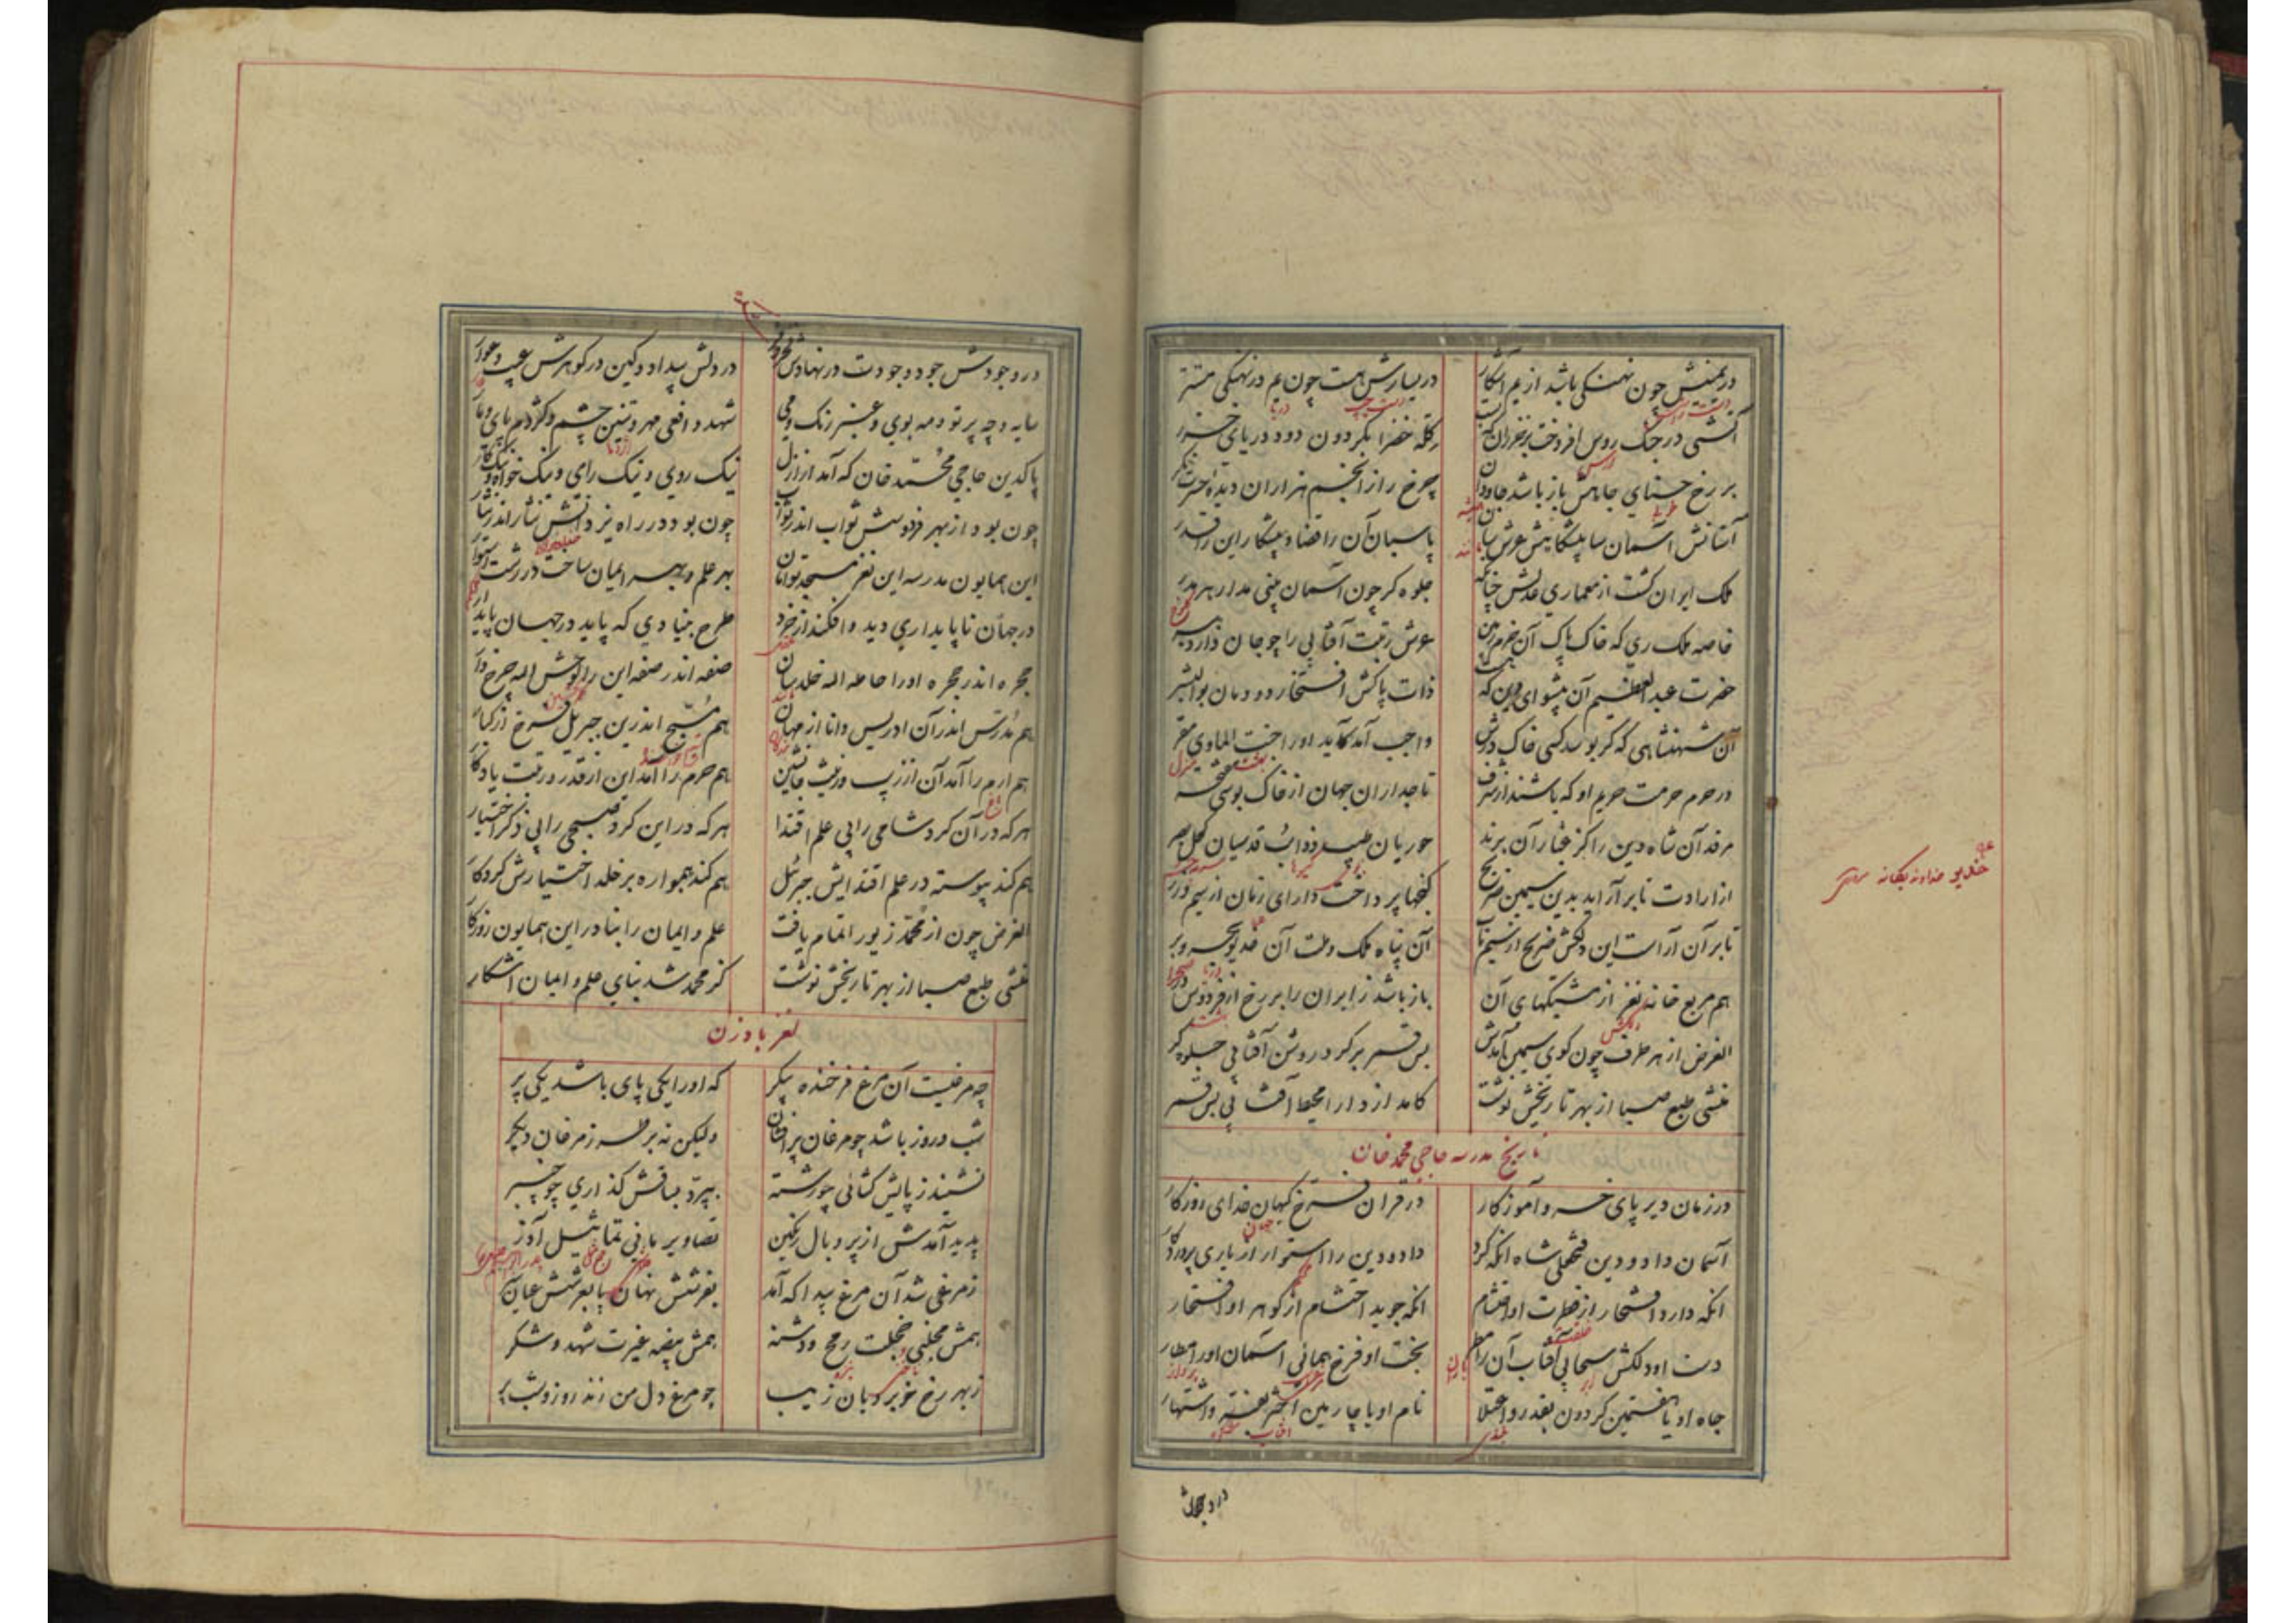 در یمینش چون نهنگی باشد از یم آشکار
در یسارش هست چون یم در نهنگی مستتر
آتشی در جنگ روس افروخت بر خزران که بست
کله خضرا بگردون دود دریای خزر
بر رخ حسنای جاهش باز باشد جاودان
چرخ را از انجم هزاران دیده حسرت نگر
آستانش آسمان سا پیشگاهش عرش سان
پاسبان آن را قضا و پیشکار این را قدر
ملک ایران گشت از معماری عدلش چنانکه
جلوه گر چون آسمان بینی مدار هر مدر
خاصه ملک ری که خاک پاک آن خرم زمین
عرش رتبت آفتابی را چو جان دارد ببر
حضرت عبدالعظیم آن پیشوای دین که هست
ذات پاکش افتخار دودمان بوالبشر
آن شهنشاهی که گر بوسد کسی خاک درش
واجب آمد کآید او را جنت الماوی مقر
در حرم حرمت حریم او که باشند از شرف
تاجداران جهان از خاک بوسی مفتخر
مرقد آن شاه دین را کز غبار آن برند
حوریان طیب ذوائب قدسیان کحل بصر
از ارادت تا بر آراید بدین سیمین ضریح
گنجها پرداخت دارای زمان از سیم و زر
تا بر آن آراست این دلکش ضریح از سیم ناب
آن پناه ملک و ملت آن خدیو بحر و بر
هم مربع خانه نغز از مشبکهای آن
باز باشد ز ایران را بر رخ از فردوس در
الغرض از هر طرف چون گوی سیمین آمدش
بس قمر بر گرد روشن آفتابی جلوه گر
منشی طبع صبا از بهر تاریخش نوشت
کامد از دارا محیط آفتابی بس قمر
تاریخ مدرسه حاجی محمد خان
در زمان دیر پای خسرو آموزگار
در قران فرخ کیهان خدای روزگار
آسمان داد و دین فتحعلی شاه آنکه کرد
داد و دین را استوار از یاری پروردگار
آنکه دارد افتخار از فطرت او احتشام
آنکه جوید احتشام از گوهر او افتخار
دست او دلکش سحابی آفتاب آن را مطر
بخت او فرخ همائی آسمان او را مطار
جاه او با هفتمین گردون بقدر و اعتلا
نام او با چارمین اختر بعز و اشتهار
خدیو خداوند یگانه
در وجودش جود و جودت در نهادش
در دلش بیداد و کین در گوهرش عیب و عوار
سایه و چه پرتو و مه بوی و عنبر رنگ و می
شهد و افعی مهر و تنین چشم و کژدم پای و مار
پاکدین حاجی محمد خان که آمد از ازل
نیک روی و نیک رای و نیک خواه و نیک کار
چون بود از بهر فردوسش ثواب اندر ثواب
چون بود در راه یزدانش نثار اندر نثار
این همایون مدرسه این نغز مسجد توامان
بهر علم و بهر ایمان ساخت در رشت استوار
در جهان ناپایداری دید و افکند از خرد
طرح بنیادی که پاید در جهان پایدار
حجره اندر حجره او را حامد اله خلد سان
صفه اندر صفه این را نوش اله چرخ وار
هم مدرس اندر آن ادریس دانا از جهان
هم مسبح اندرین جبریل فرخ از کبار
هم ارم را آمد آن از زیب و زینت جانشین
هم حرم را آمد این از قدر و رتبت یادگار
هر که در آن کرد شامی را بی علم اقتدا
هر که در این کرد صبحی را بی ذکر اختیار
هم کند پیوسته در علم اقتدایش جبرئیل
هم کند همواره بر خلد اختیارش کردگار
الغرض چون از محمد زیور اتمام یافت
علم و ایمان را بنا در این همایون روزگار
منشی طبع صبا از بهر تاریخش نوشت
کز محمد شد بنای علم و ایمان آشکار
لغز بادزن
چه مرغیست آن مرغ فرخنده پیکر
که او را یکی پای باشد یکی پر
شب و روز باشد چو مرغان پر افشان
ولیکن نه بر طرز مرغان دیگر
نشیند ز پایش گشائی چو رشته
بپرد بساقش گذاری چو چنبر
پدید آمدش از پر و بال رنگین
تصاویر مانی تماثیل آذر
ز مرغی شد آن مرغ پیدا که آمد
بفرشش نهان پا بعرشش عیان
همش مخلبی خجلت رمح و دشنه
همش بیضه غیرت شهد و شکر
ز بهر رخ خوبرویان ز یب
چو مرغ دل من زند روز و شب پر